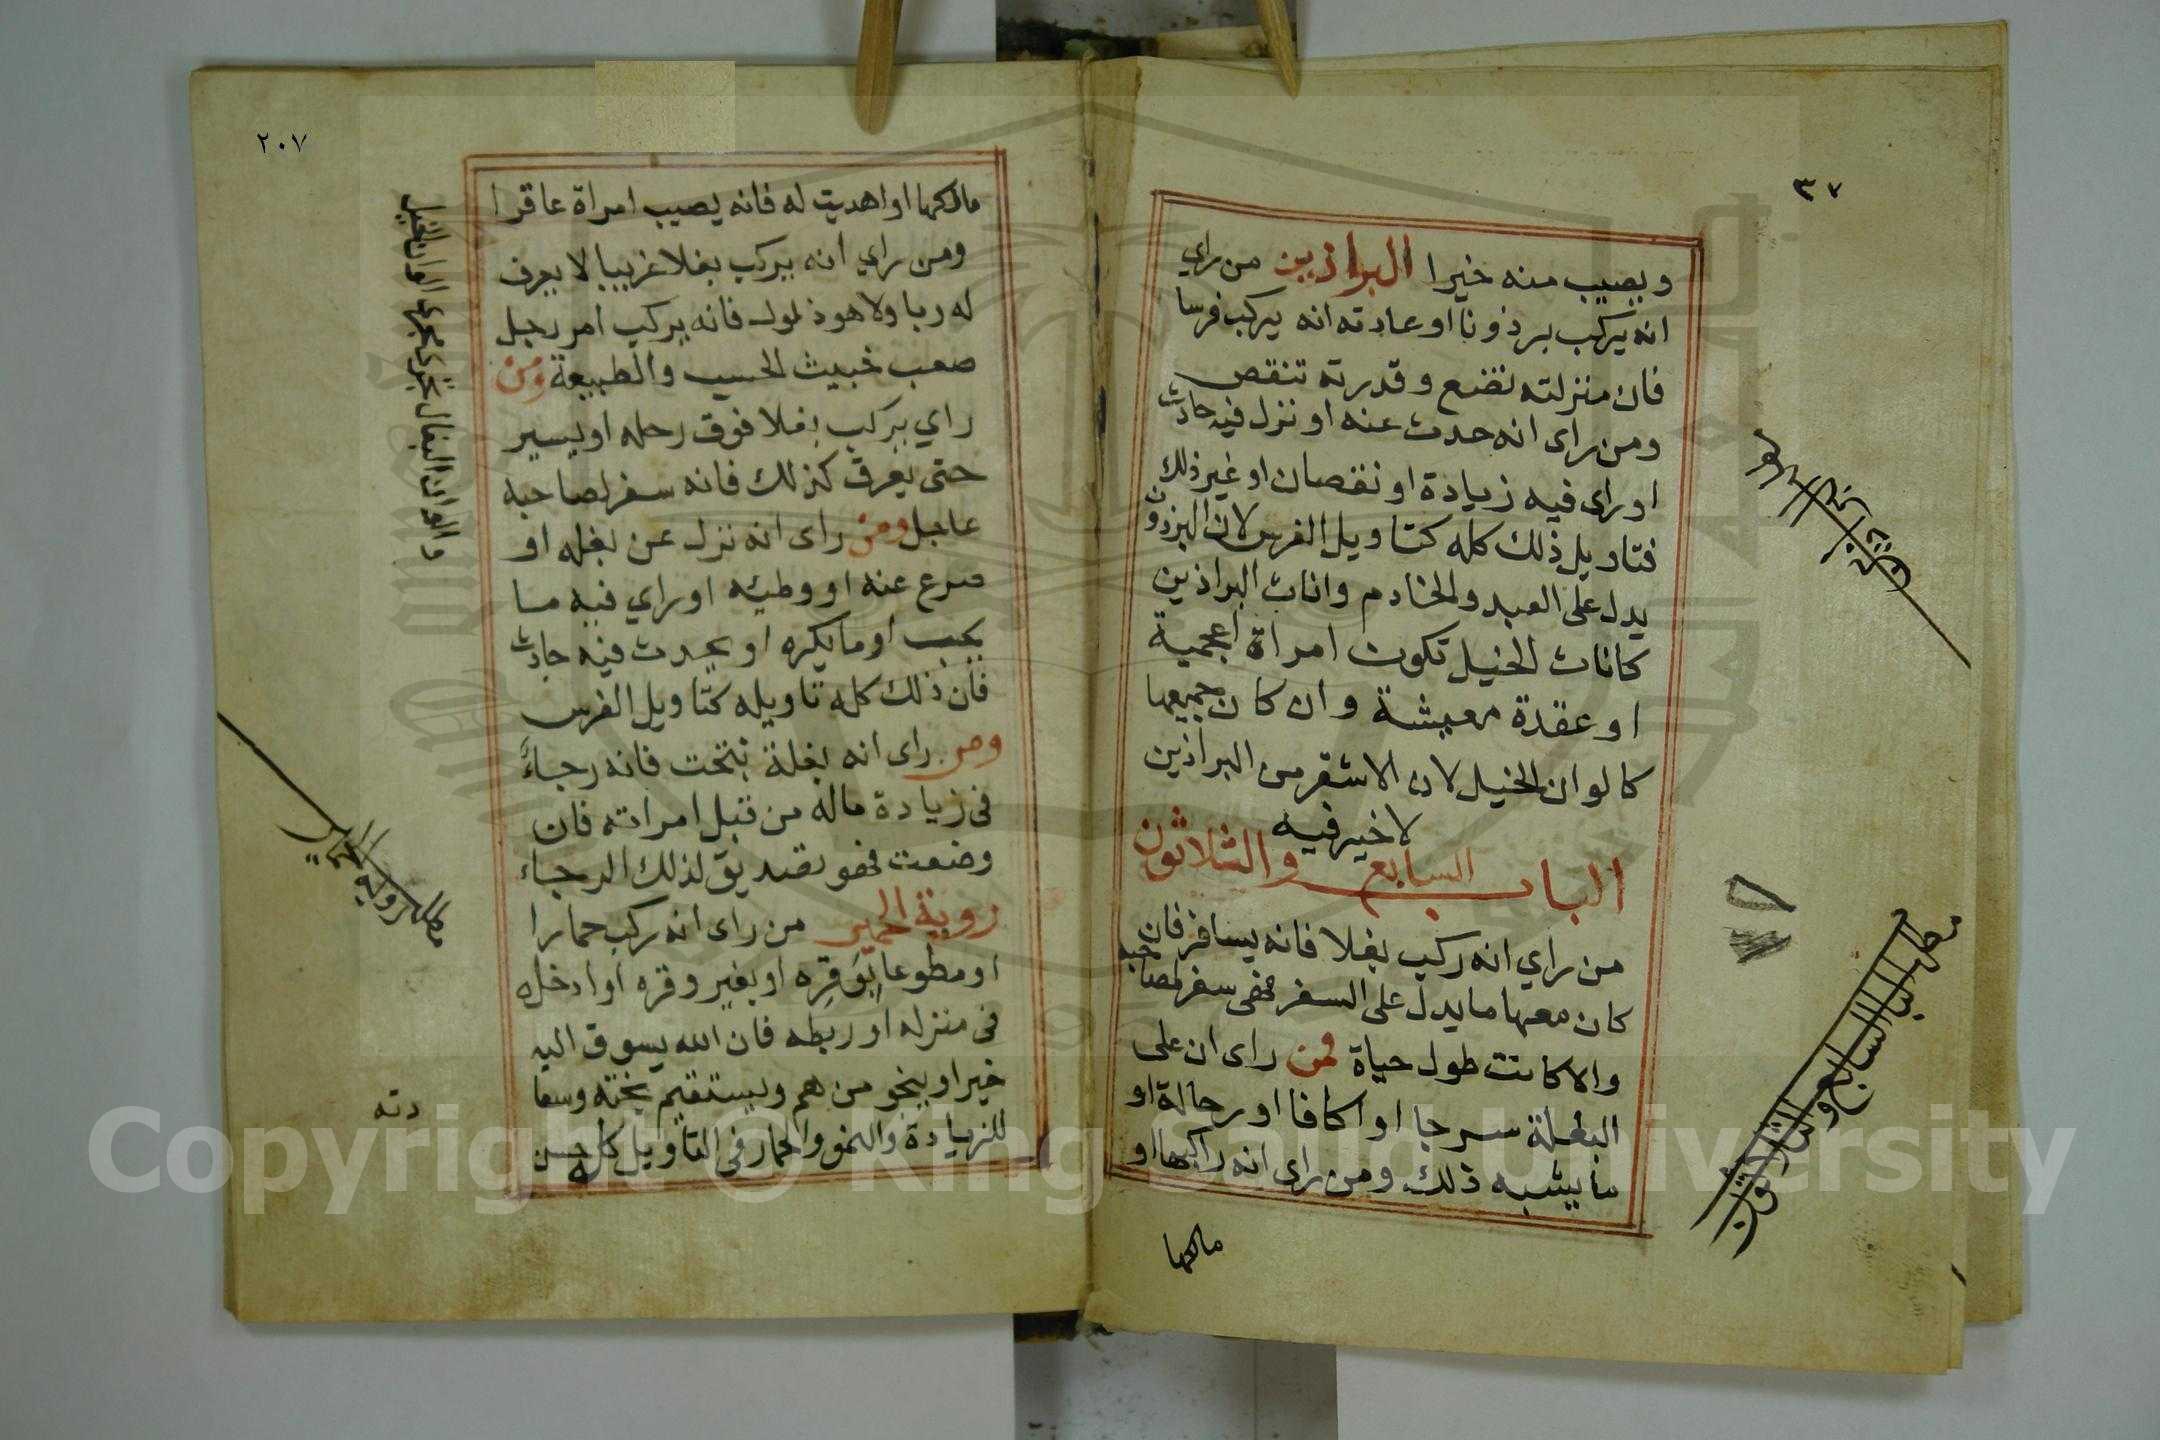 ٣٧
ويصيب منه خيرا البراذين من راي
انه يركب برذونا او عادته انه يركب فرسا
فان منزلته تضع وقدرته تنقص
ومن راى انه حدث عنه او نزل فيه حادث
او راى فيه زيادة او نقصان او غير ذلك
فتاويل ذلك كله كتاويل الفرس لان البرذون
يدل على العبد والخادم واناث البراذين
كاناث الخيل تكون امراة اعجمية
او عقدة معيشة وان كان جميعها
كالوان الخيل لان الاشقر من البراذين
لا خير فيه
الباب السابع والثلاثون
من راي انه ركب بغلا فانه يسافر فان
كان معها ما يدل على السفر فهى سفر لصاحبه
والا كانت طول حياة فمن راى ان على
البغلة سرجا او اكافا او رحالة او
ما يشبه ذلك ومن راى انه راكبها او
مالكها
مطلب الباب السابع والثلاثون
٢٠٧
مالكها او اهديت له فانه يصيب امراة عاقرا
ومن راي انه يركب بغلا غريبا لا يعرف
له ربا ولا هو ذلول فانه يركب امر رجل
صعب خبيث الحسب والطبيعة ومن
راي يركب بغلا فوق رحله او يسير
حتى يعرق كذلك فانه سفر لصاحبه
عاجل ومن راى انه نزل عن بغله او
صرع عنه او وطيه او راي فيه ما
يجب او ما يكره او يحدث فيه حادث
فان ذلك كله تاويله كتاويل الفرس
ومن راى انه بغلة نتجت فانه رجاء
فى زيادة ماله من قبل امراته فان
وضعت فهو تصديق لذلك الرجاء
روية الحمير من راى انه ركب حمارا
او مطوعا بوقره او بغير وقره او ادخله
فى منزله او ربطه فان الله يسوق اليه
خيرا وينجو من هم ويستقيم بخته وسعا
للزيادة والنمو والحمار فى التاويل كله حسن
والوان البغال تجرى مجرى الوان الخيل
مطلب روية الحمير
دته
Copyright © King Saud University